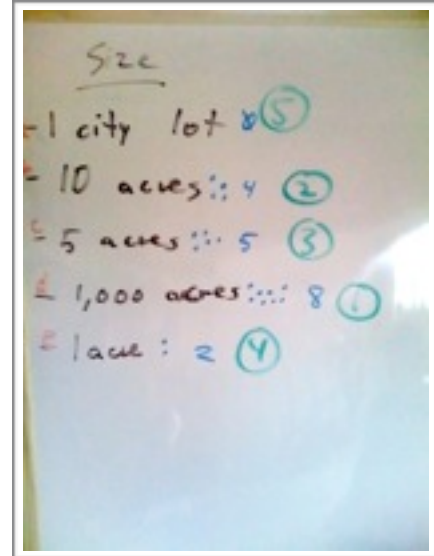 Size
- 1 city lot 0 5
- 10 acres 4 2
- 5 acres 5 3
- 1,000 acres 8 1
- 1 acre : 2 4